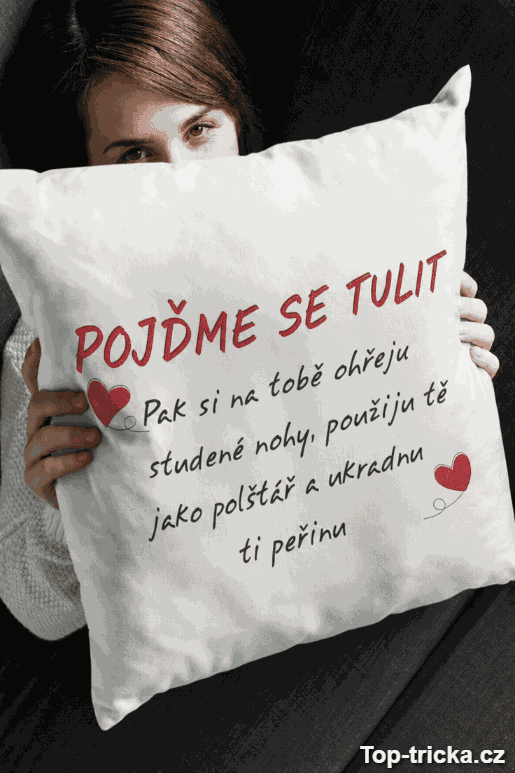 POJĎME SE TULIT
Pak si na tobě ohřeju
studené nohy, použiju tě
jako polštář a ukradnu
ti peřinu
Top-tricka.cz